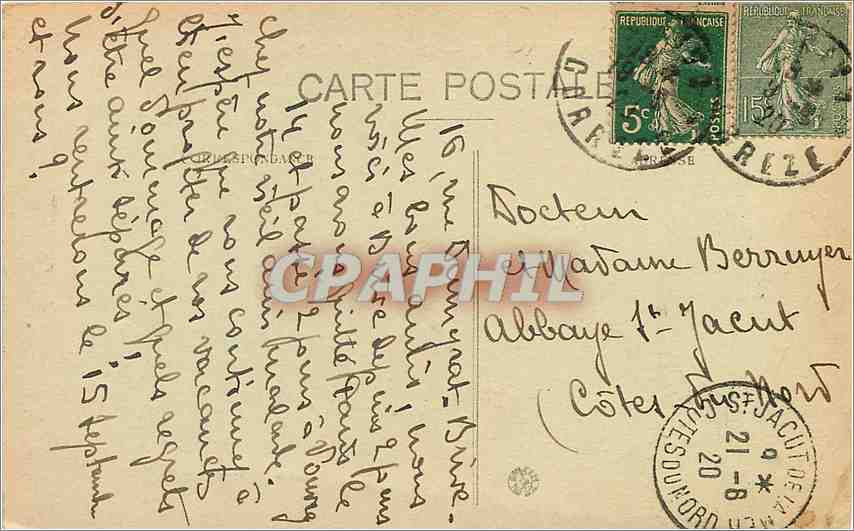 CARTE POSTALE
CORRESPONDANCE
ADRESSE
RÉPUBLIQUE FRANÇAISE
5c
POSTES
RÉPUBLIQUE FRANÇAISE
15c
CORREZE
Docteur
et Madame Berruyer
Abbaye St Jacut
Côtes du Nord
ST JACUT DE LA MER
9 *
21-8
20
CÔTES DU NORD
16, rue Dumyrat - Brive -
Mes bons amis, nous
voici à Brive depuis 2 jours
nous avons quitté Paris le
14 et passé 2 jours à
chez notre vieil ami malade.
J'espère que vous continuez à
bien profiter de vos vacances
quel dommage et quels regrets
d'être ainsi séparés!
Nous rentrerons le 15 Septembre
et vous?
CPAPHIL